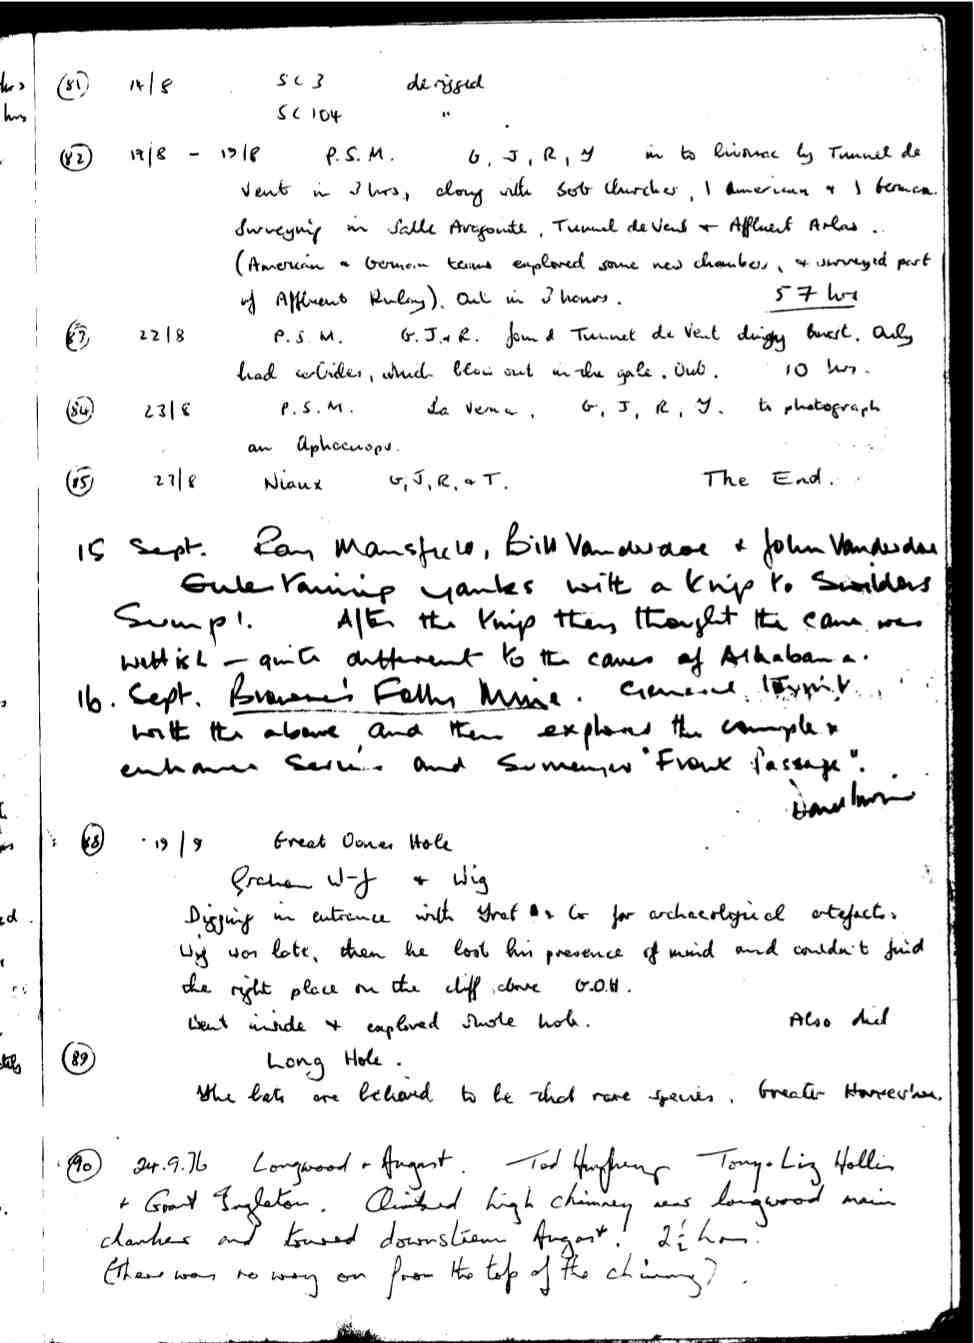 hrs (81) 14/8 SC3 derigged
hrs SC104 "
(82) 17/8 - 19/8 P.S.M. G, J, R, Y in to bivouac by Tunnel de
Vent in 3 hrs, along with Bob Churcher, 1 American + 1 German.
Surveying in Salle Aragonite, Tunnel de Vent + Affluent Arlas ..
(American + German teams explored some new chambers, + surveyed part
of Affluent ). Out in 3 hours. 57 hrs
(83) 22/8 P.S.M. G. J. + R. found Tunnel de Vent dinghy burst. Only
had, which blew out in the gale. Out. 10 hrs.
(84) 23/8 P.S.M. La Verna, G, J, R, Y. to photograph
an Aphaenops.
(85) 27/8 Niaux G, J, R, + T. The End.
15 Sept. Ray Mansfield, Bill Vanderdoe + John Vanderdoe
Entertaining yanks with a trip to Swildons
Sump 1. After the trip they thought the cave was
wettish - quite different to the caves of Alhabama.
16. Sept. Browne's Folly Mine. General
with the above and then explored the complex
entrance Series and "Front Passage".
(88) 19/9 Great Oones Hole
Graham W-J + Wig
Digging in entrance with + Co for archaeological artefacts.
Wig was late, then he lost his presence of mind and couldn't find
the right place on the cliff above G.O.H.
Went inside + explored whole hole. Also did
(89) Long Hole.
The bats are believed to be that rare species, Greater Horseshoe.
(90) 24.9.76 Longwood - August. Tod Humphreys Tony + Liz Hollis
+ Grant Ingleton. Climbed high chimney near longwood main
chamber and toured downstream August! 2½ hrs.
(there was no way on from the top of the chimney).